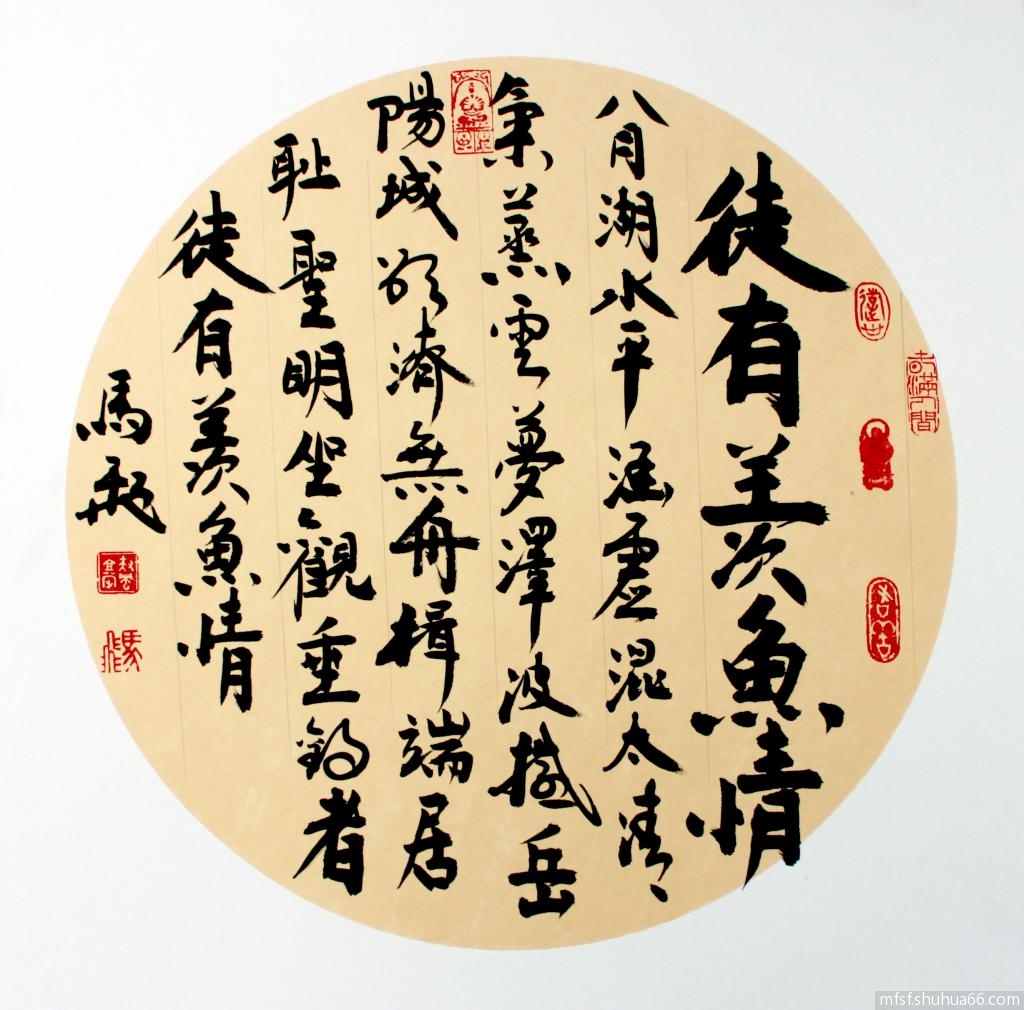 徒有羡魚情
八月湖水平涵虛混太清
氣蒸雲夢澤波撼岳
陽城欲濟無舟楫端居
耻聖明坐觀垂釣者
徒有羡魚情
馬飛
mfsf.shuhua66.com